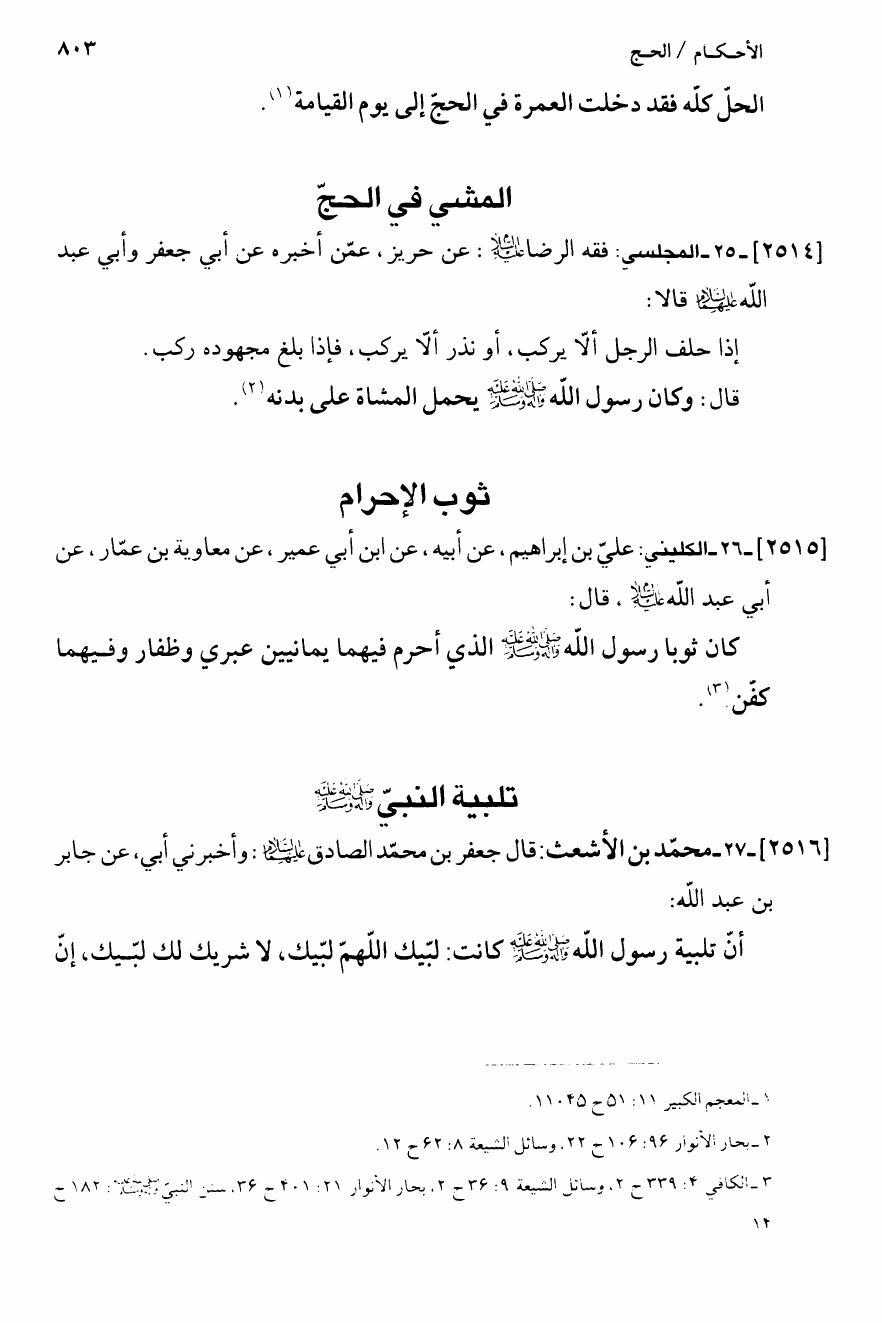 الأحكام / الحج ٨٠٣
الحلّ كلّه فقد دخلت العمرة في الحجّ إلى يوم القيامة(١).
المشي في الحجّ
[٢٥١٤] ـ ٢٥ ـ المجلسي: فقه الرضا عليه السلام : عن حريز ، عمّن أخبره عن أبي جعفر وأبي عبد
اللّه عليهما السلام قالا:
إذا حلف الرجل ألّا يركب، أو نذر ألّا يركب، فإذا بلغ مجهوده ركب.
قال: وكان رسول اللّه صلى الله عليه وآله وسلم يحمل المشاة على بدنه(٢).
ثوب الإحرام
[٢٥١٥] ـ ٢٦ ـ الكليني: عليّ بن إبراهيم ، عن أبيه ، عن ابن أبي عمير ، عن معاوية بن عمّار ، عن
أبي عبد اللّه عليه السلام ، قال:
كان ثوبا رسول اللّه صلى الله عليه وآله وسلم الذي أحرم فيهما يمانيين عبري وظفار وفيهما
كفّن(٣).
تلبية النبيّ صلى الله عليه وآله وسلم
[٢٥١٦] ـ ٢٧ ـ محمّد بن الأشعث: قال جعفر بن محمّد الصادق عليهما السلام : وأخبرني أبي، عن جابر
بن عبد اللّه:
أنّ تلبية رسول اللّه صلى الله عليه وآله وسلم كانت: لبّيك اللّهمّ لبّيك، لا شريك لك لبّيك، إنّ
١ ـ المعجم الكبير ١١: ٥١ ح ١١٠٤٥.
٢ ـ بحار الأنوار ٩٦: ١٠٦ ح ٢٢، وسائل الشيعة ٨: ٦٢ ح ١٢.
٣ ـ الكافي ٤: ٣٣٩ ح ٢، وسائل الشيعة ٩: ٣٦ ح ٢، بحار الأنوار ٢١: ٤٠١ ح ٣٦، سنن النبيّ صلى الله عليه وآله وسلم: ١٨٢ ح
١٤